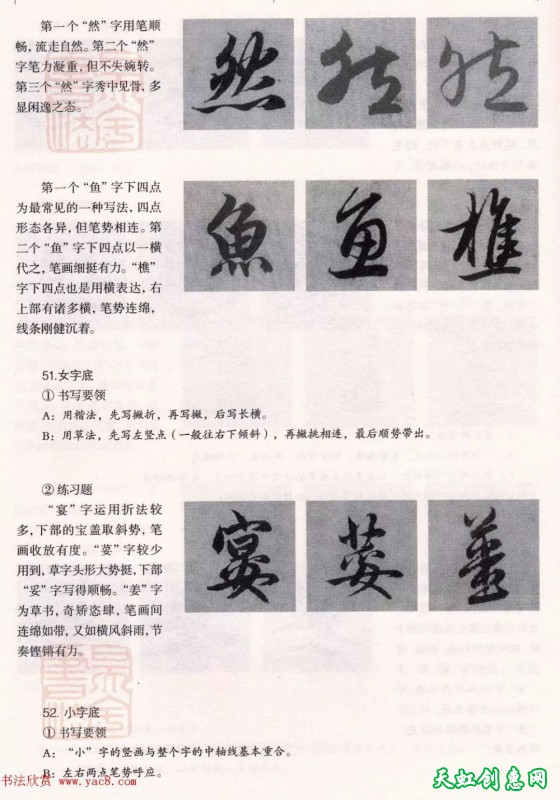 第一个“然”字用笔顺
畅，流走自然。第二个“然”
字笔力凝重，但不失婉转。
第三个“然”字秀中见骨，多
显闲逸之态。
然 然 然
第一个“鱼”字下四点
为最常见的一种写法，四点
形态各异，但笔势相连。第
二个“鱼”字下四点以一横
代之，笔画细挺有力。“樵”
字下四点也是用横表达，右
上部有诸多横，笔势连绵，
线条刚健沉着。
魚 魚 樵
51.女字底
①书写要领
A：用楷法，先写撇折，再写撇，后写长横。
B：用草法，先写左竖点（一般往右下倾斜），再撇挑相连，最后顺势带出。
②练习题
“宴”字运用折法较
多，下部的宝盖取斜势，笔
画收放有度。“荽”字较少
用到，草字头形大势挺，下部
“妥”字写得顺畅。“姜”字
为草书，奇矫恣肆，笔画间
连绵如带，又如横风斜雨，节
奏铿锵有力。
宴 荽
52.小字底
①书写要领
A：“小”字的竖画与整个字的中轴线基本重合。
B：左右两点笔势呼应。
书法欣赏 www.yac8.com
天虹创意网